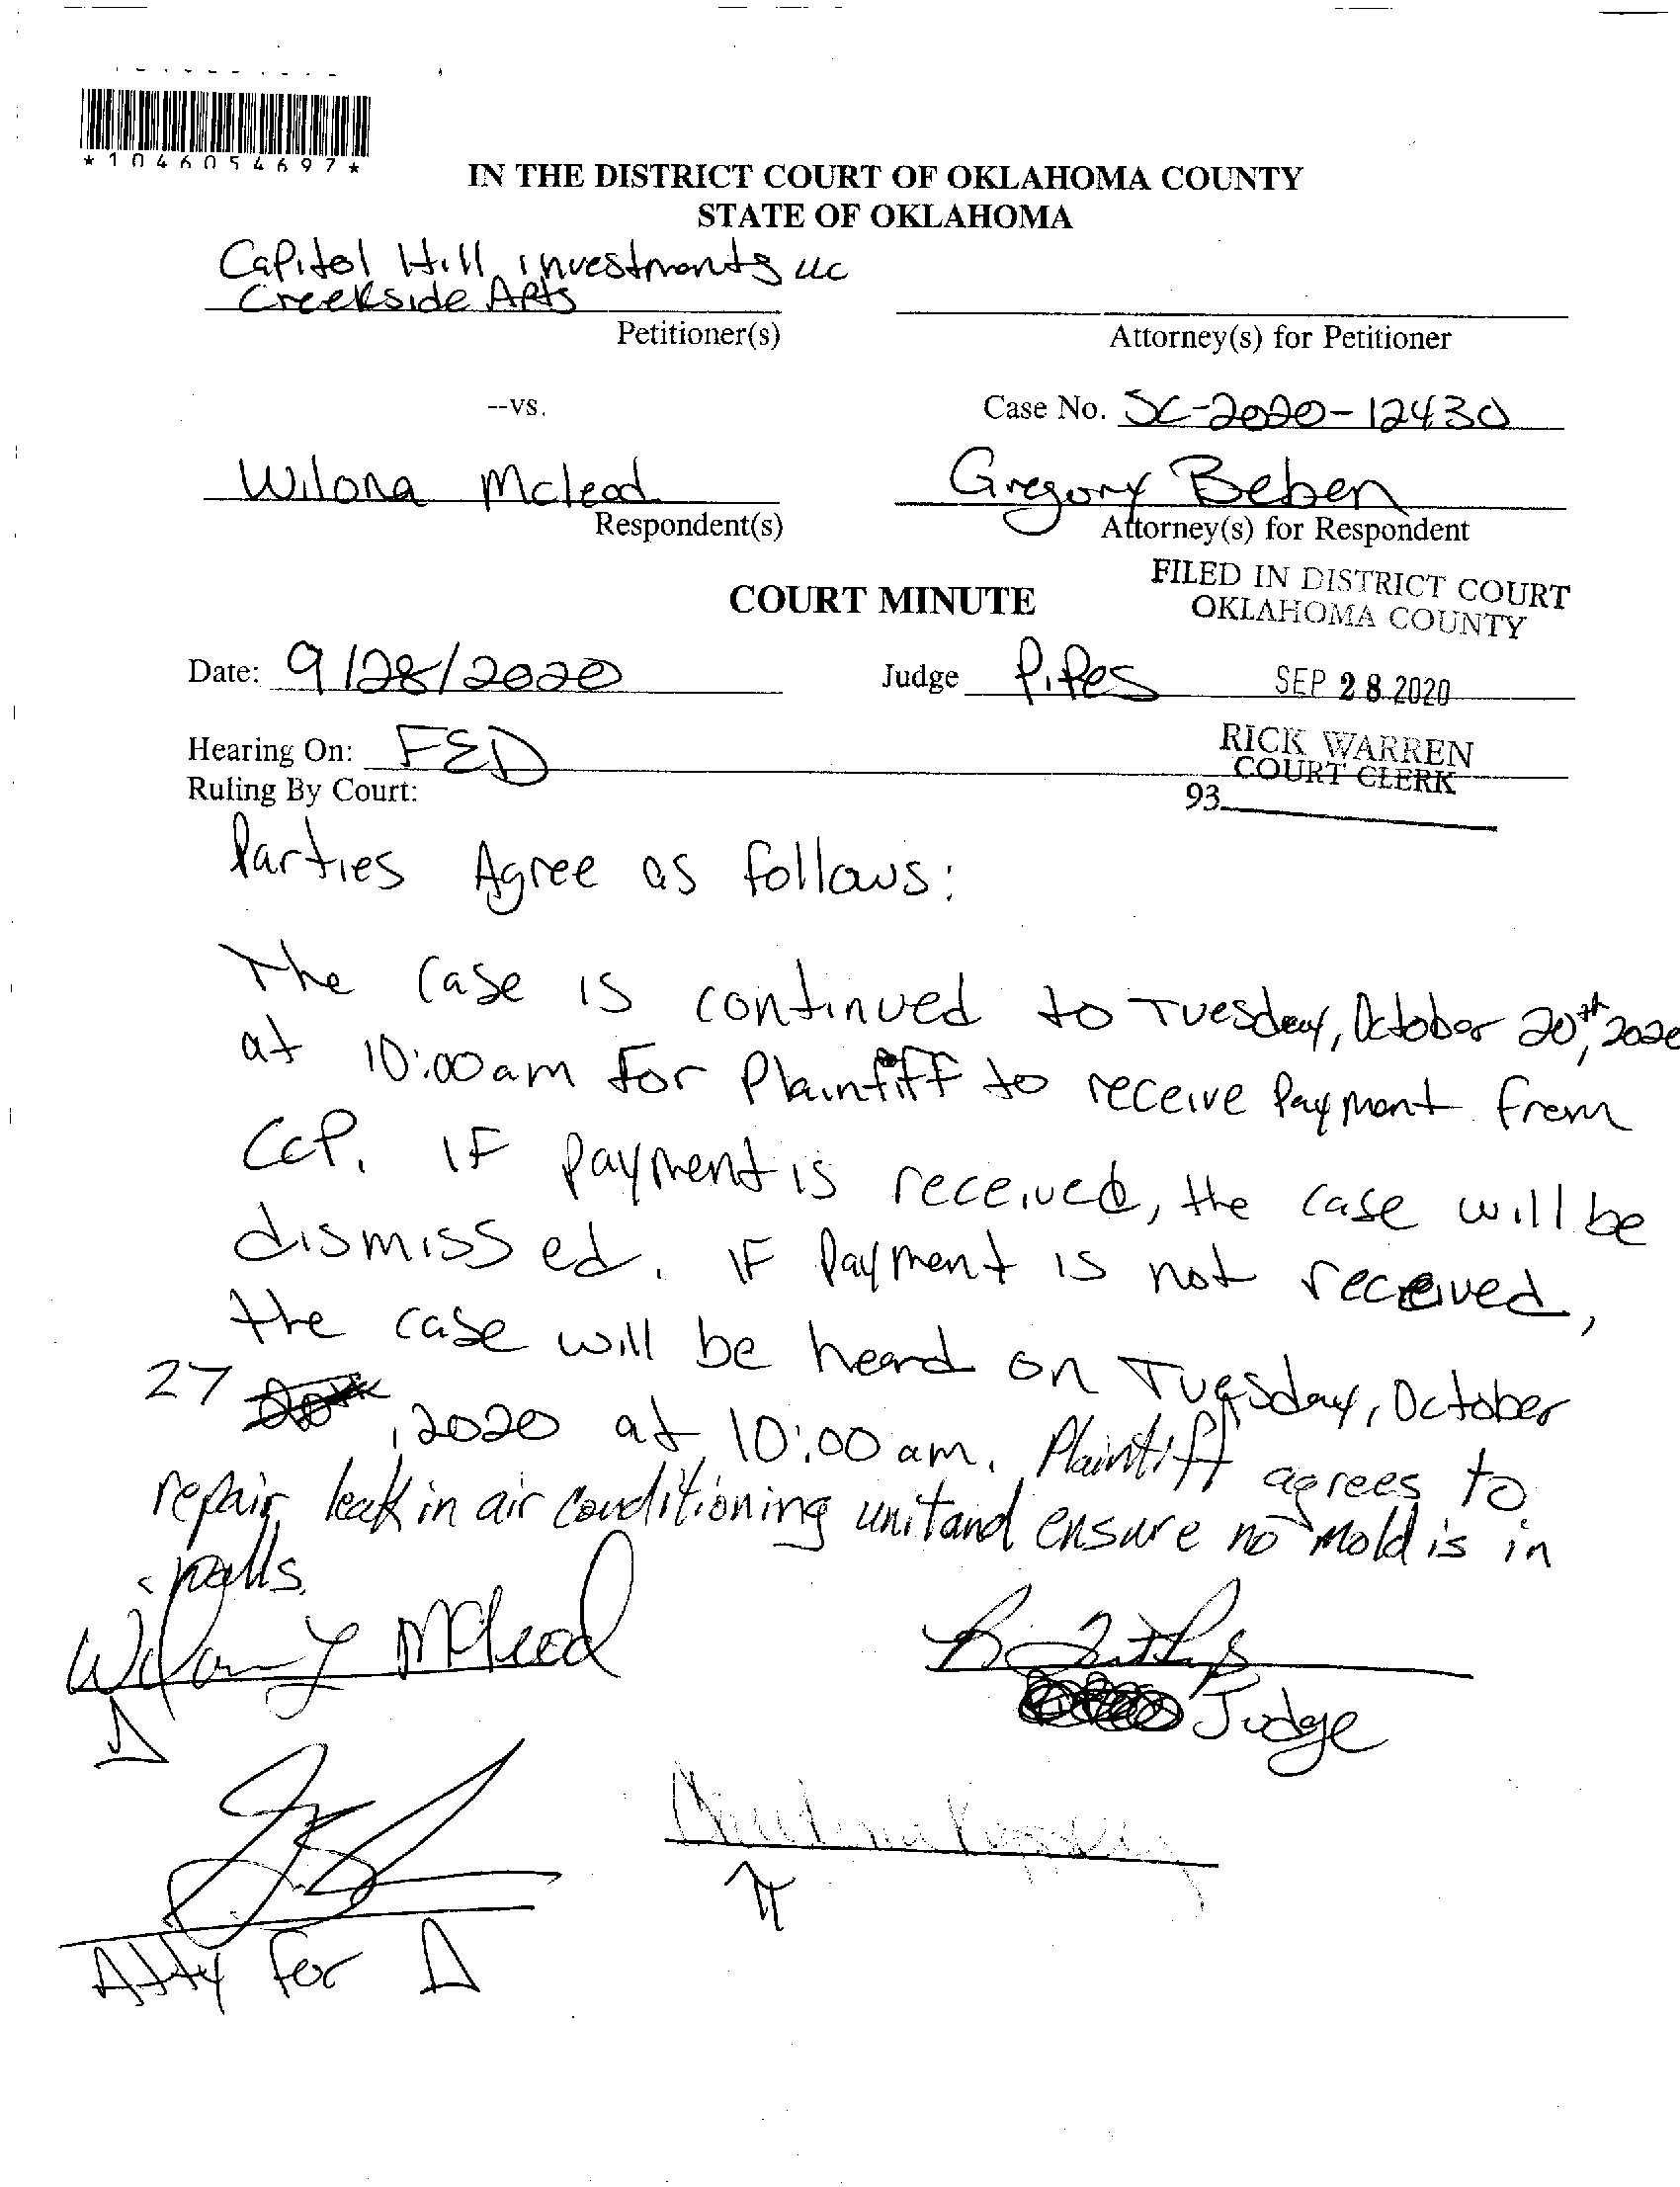 *1046054697*
IN THE DISTRICT COURT OF OKLAHOMA COUNTY
STATE OF OKLAHOMA
Capitol Hill investments LLC
Creekside Apts
Petitioner(s)
Attorney(s) for Petitioner
--vs.
Case No. SC-2020-12430
Wilona Mcleod
Respondent(s)
Gregory Beben
Attorney(s) for Respondent
COURT MINUTE
FILED IN DISTRICT COURT
OKLAHOMA COUNTY
Date: 9/28/2020
Judge Pipes
SEP 28 2020
Hearing On: FED
RICK WARREN
COURT CLERK
Ruling By Court:
93
Parties Agree as follows:
The case is continued to Tuesday, October 20th, 2020
at 10:00am for Plaintiff to receive Payment from
CCP. IF payment is received, the case will be
dismissed. IF Payment is not received,
the case will be heard on Tuesday, October
27, 2020 at 10:00 am. Plaintiff agrees to
repair leak in air conditioning unit and ensure no mold is in
walls.
McLeod
Δ
Judge
π
Atty for Δ